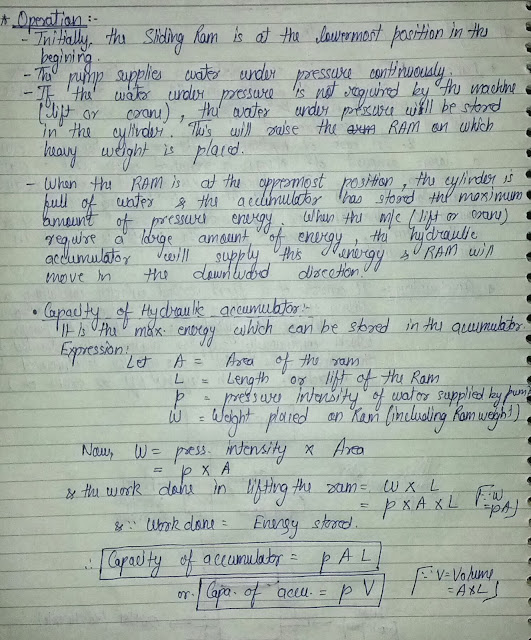 * Operation :-
- Initially, the Sliding Ram is at the lowermost position in the
begining.
- The pump supplies water under pressure continuously.
- If the water under pressure is not required by the machine
(lift or crane), the water under pressure will be stored
in the cylinder. This will raise the RAM on which
heavy weight is placed.
- When the RAM is at the uppermost position, the cylinder is
full of water & the accumulator has stored the maximum
amount of pressure energy. When the m/c (lift or crane)
require a large amount of energy, the hydraulic
accumulator will supply this energy & RAM will
move in the downward direction.
• Capacity of Hydraulic accumulator:-
It is the max. energy which can be stored in the accumulator.
Expression:
Let A = Area of the ram
L = Length or lift of the Ram
p = pressure intensity of water supplied by pump
W = Weight placed on Ram (including Ram weight)
Now, W = press. intensity x Area
= p x A
& the work done in lifting the ram = W x L
= p x A x L [∵ W = pA]
&∵ Work done = Energy stored.
∴ Capacity of accumulator = p A L
or Capa. of accu. = p V [∵ V = Volume = AxL]